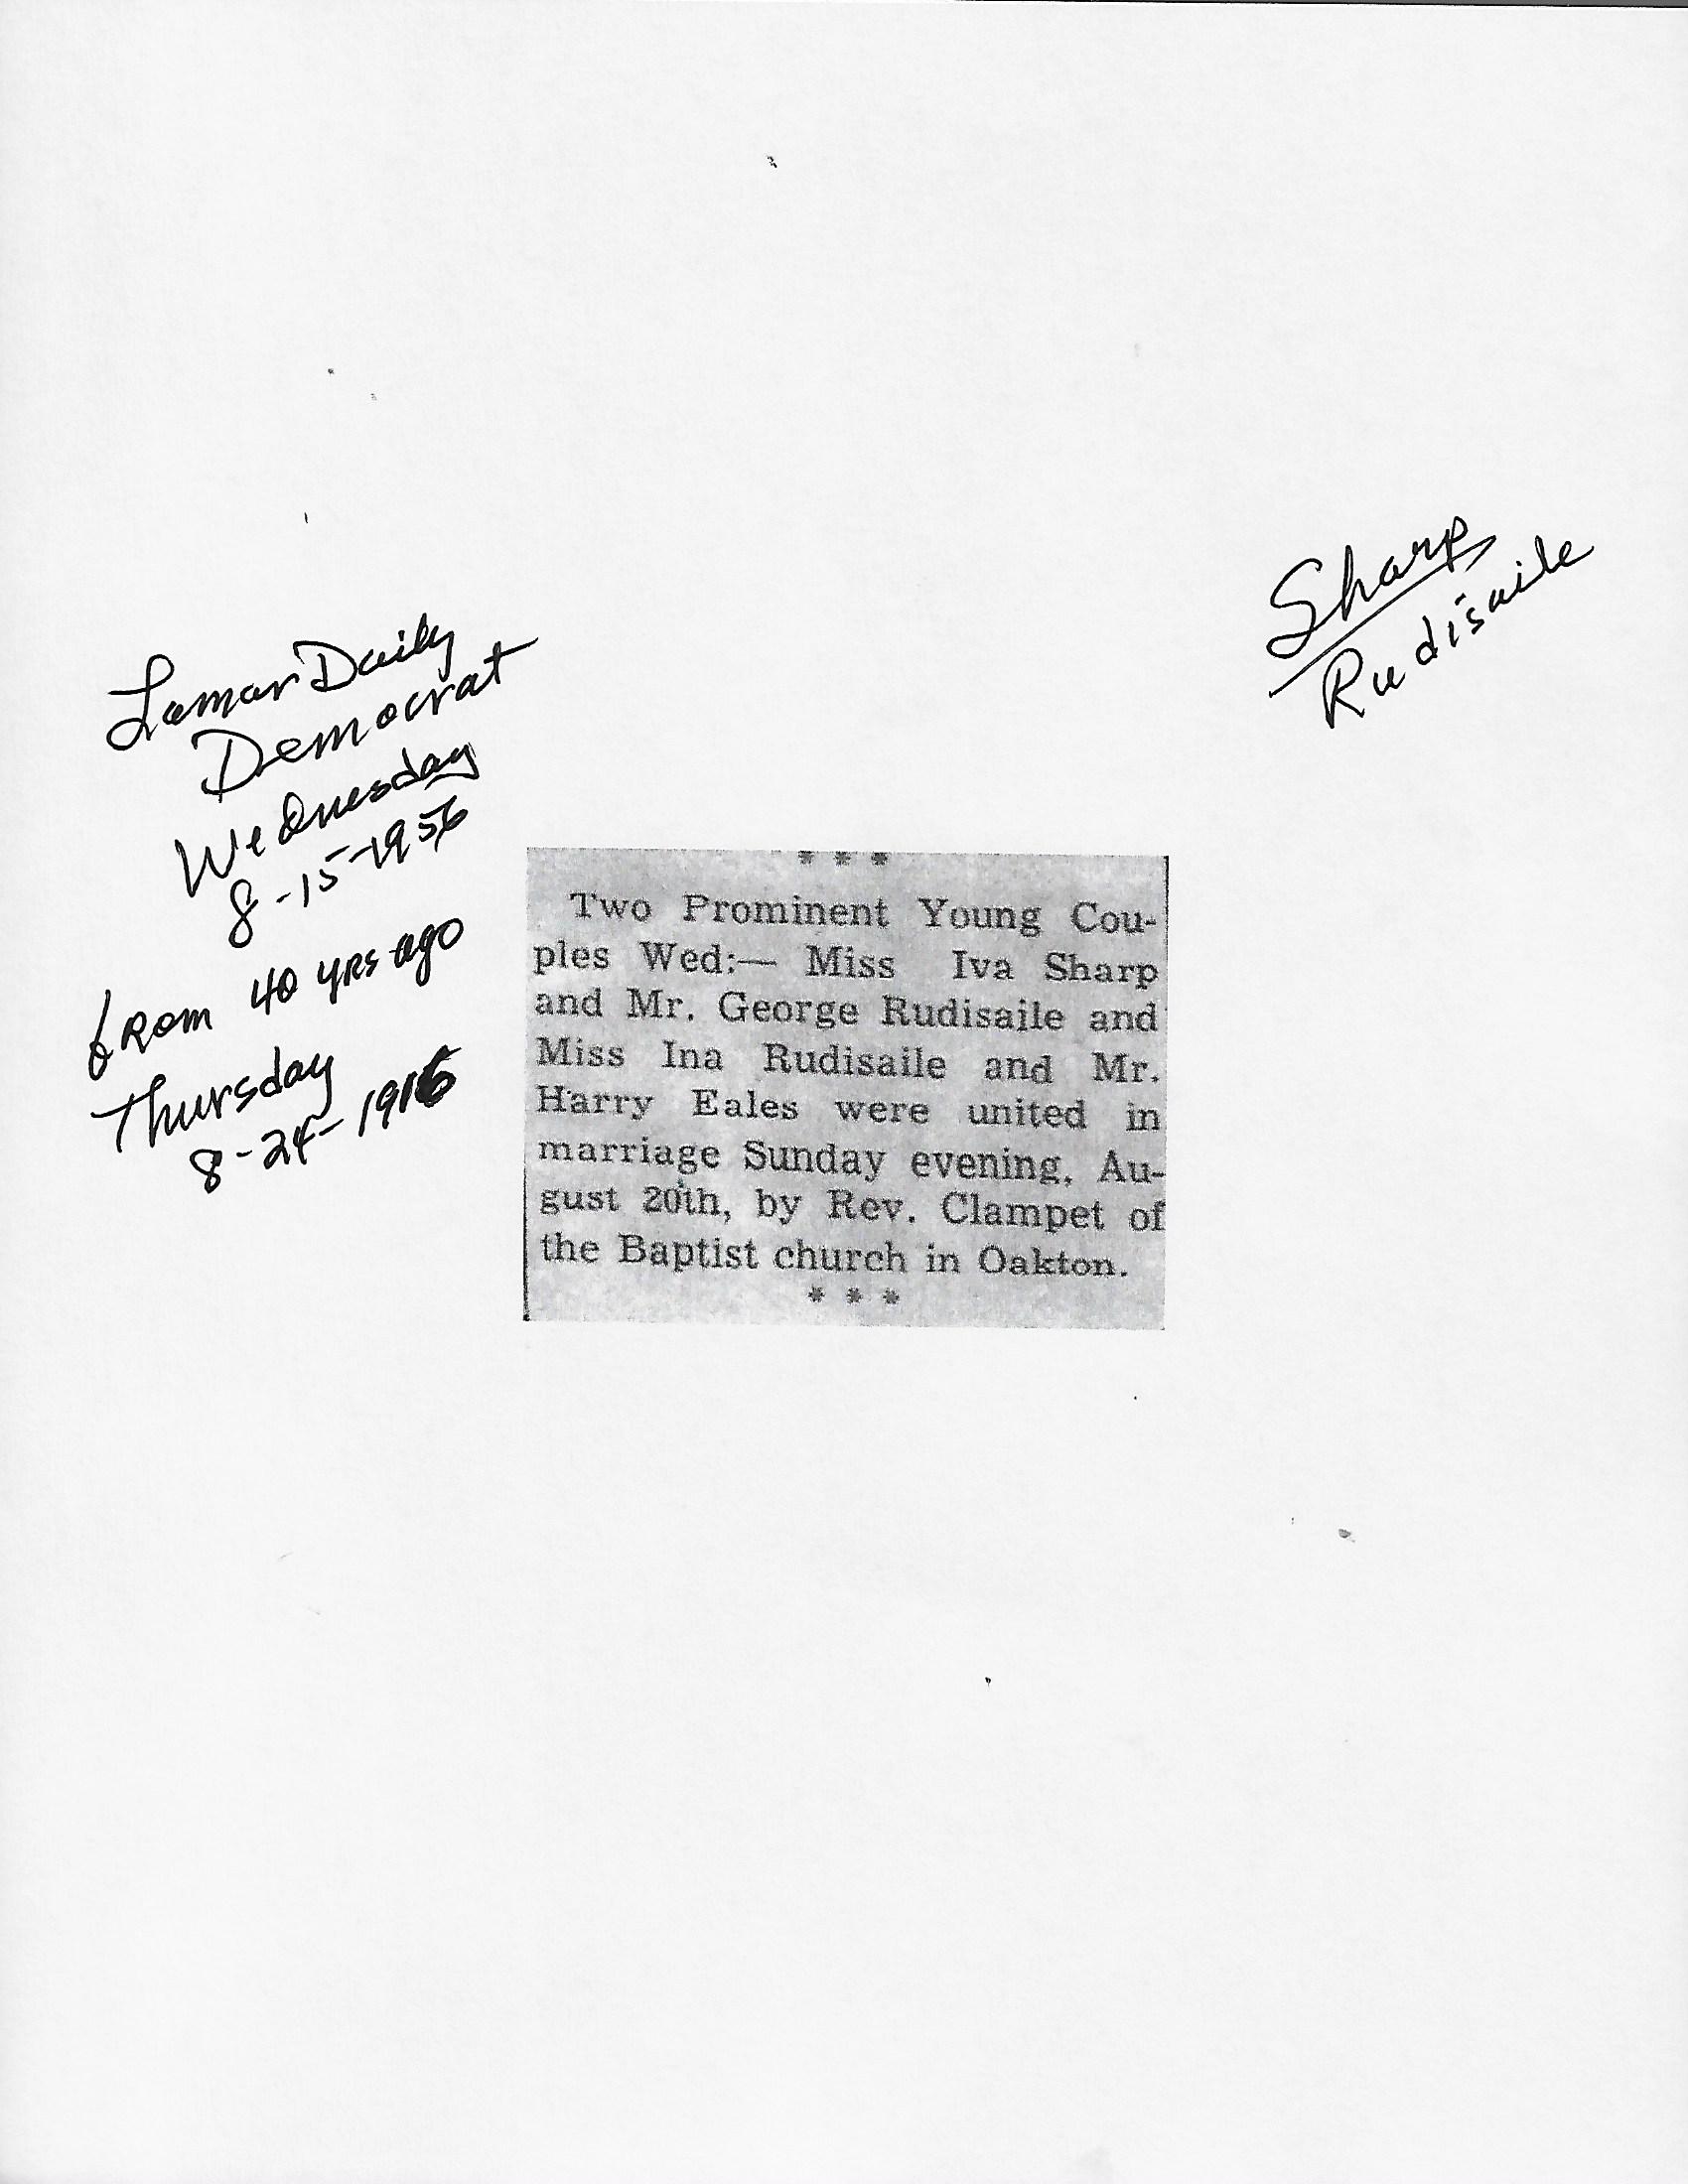 Sharp
Rudisaile
Lamar Daily
Democrat
Wednesday
8-15-1956
from 40 yrs ago
Thursday
8-24-1916
* * *
Two Prominent Young Cou-
ples Wed:— Miss Iva Sharp
and Mr. George Rudisaile and
Miss Ina Rudisaile and Mr.
Harry Eales were united in
marriage Sunday evening, Au-
gust 20th, by Rev. Clampet of
the Baptist church in Oakton.
* * *